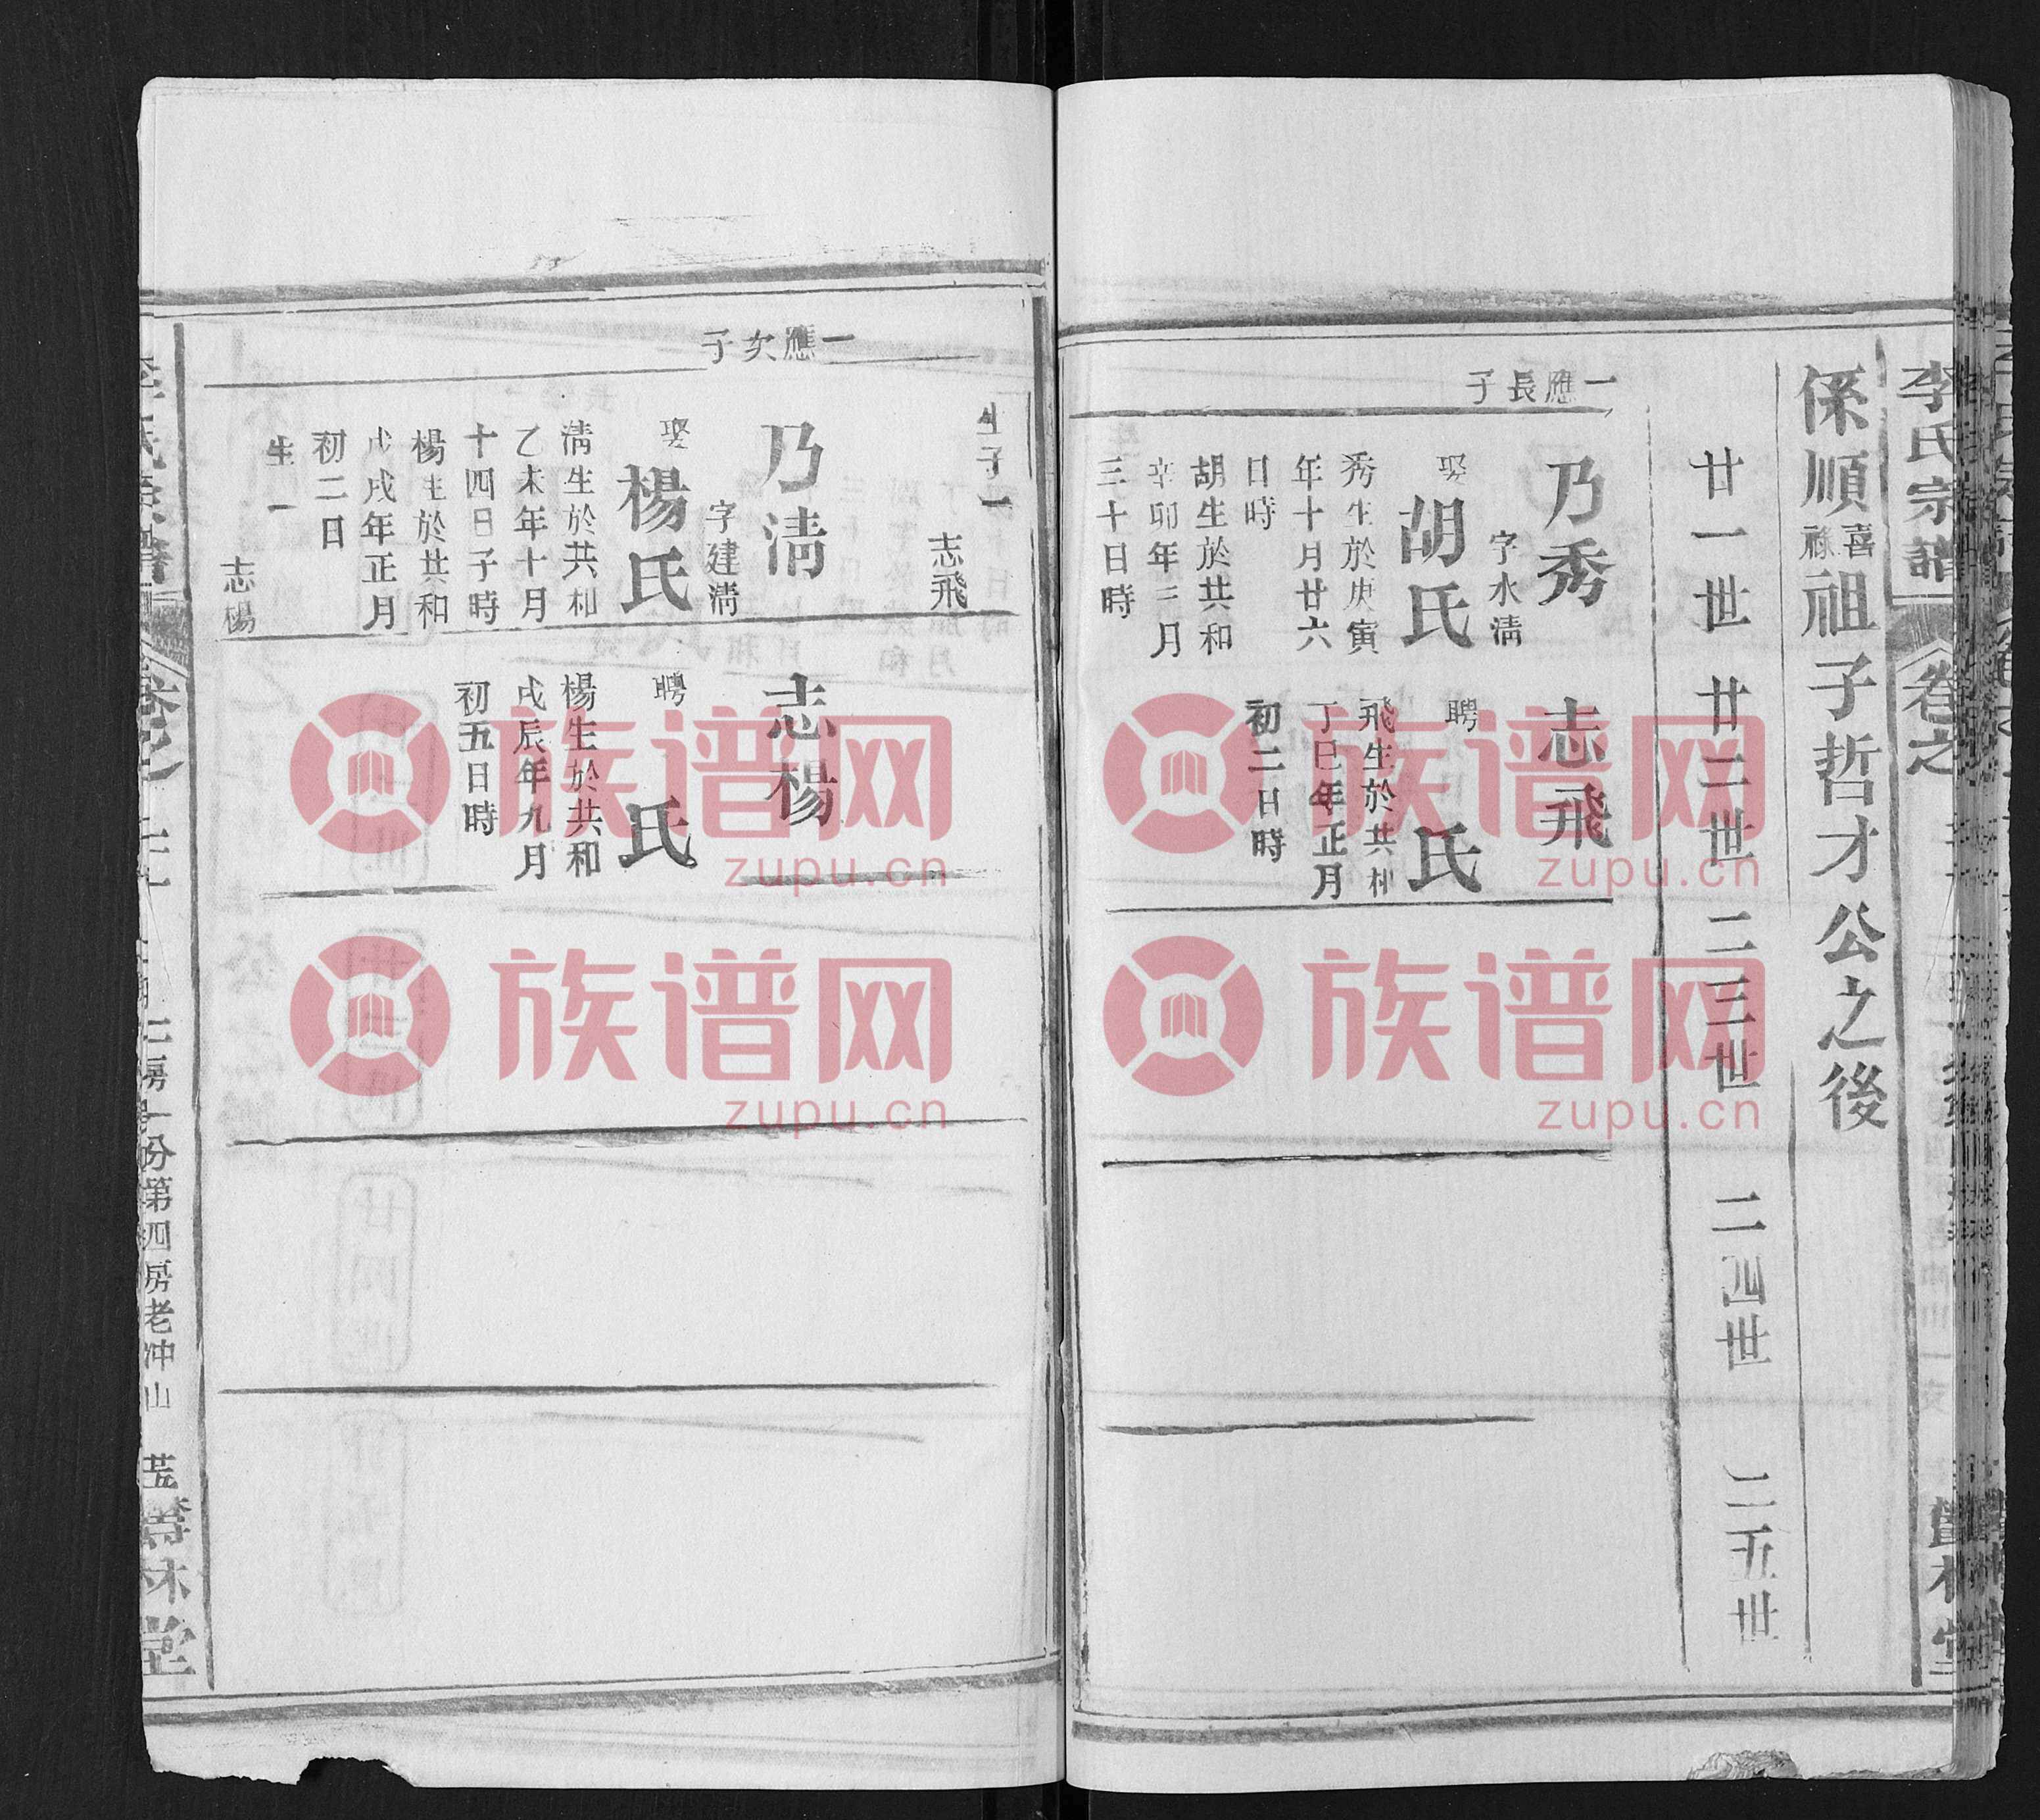 李氏宗譜
卷之
係順喜祿祖子哲才公之後
廿一世
廿二世
二三世
二四世
二五世
一應長子
乃秀
字水清
娶胡氏
秀生於庚寅
年十月廿六
日時
胡生於共和
辛卯年三月
三十日時
志飛
聘 氏
飛生於共和
丁巳年正月
初二日時
生子一
志飛
一應次子
乃清
字建清
娶楊氏
清生於共和
乙未年十月
十四日子時
楊生於共和
戊戌年正月
初二日
生一
志楊
志楊
聘 氏
楊生於共和
戊辰年九月
初五日時
二房一分第四房老冲山
林堂
族谱网
zupu.cn
族谱网
zupu.cn
族谱网
zupu.cn
族谱网
zupu.cn